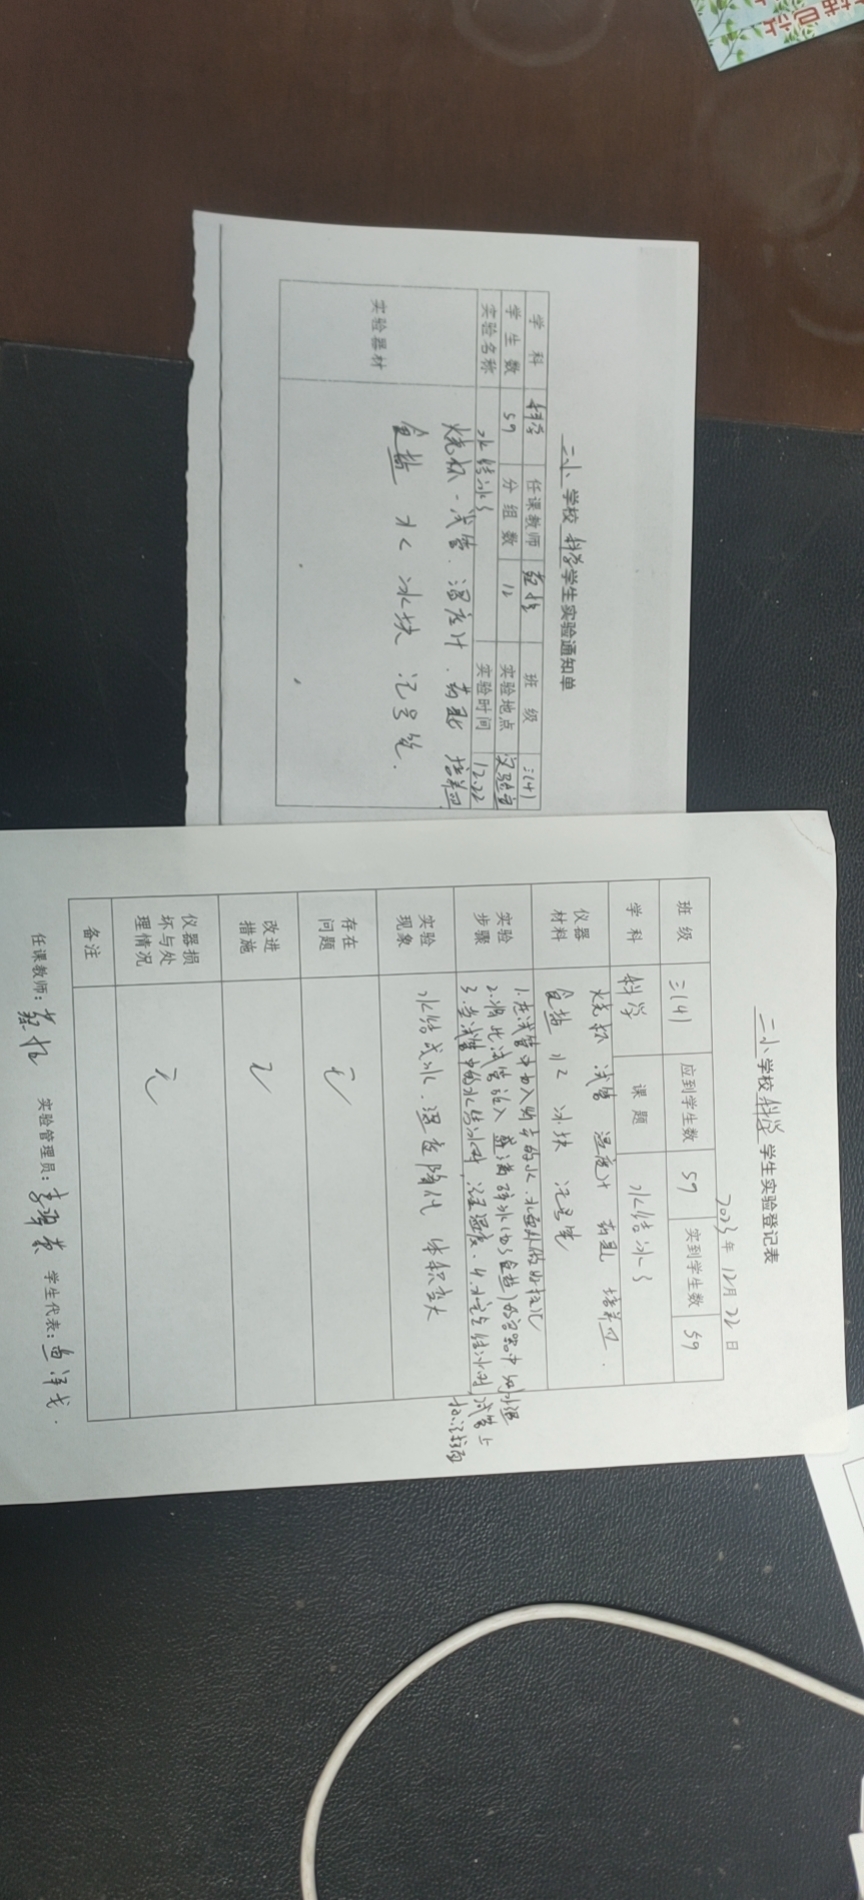 二小学校科学学生实验通知单
学科 科学 任课教师 班级 三(4)
学生数 59 分组数 12 实验地点 实验室
实验名称 水结冰了 实验时间 12.22
实验器材
烧杯、试管、温度计、药匙 培养皿
食盐 水 冰块 记号笔.
二小学校科学学生实验登记表
2023年12月22日
班级 三(4) 应到学生数 59 实到学生数 59
学科 科学 课题 水结冰了
仪器材料
烧杯 试管 温度计 药匙 培养皿.
食盐 水 冰块 记号笔
实验步骤
1.在试管中加入的水,水面处做好标记
2.将此试管放入盛满碎冰(加了食盐)的容器中
3.当试管中的水结冰时,温度.4.结冰时,试管上
标记
实验现象
水结成冰.温度降低 体积变大
存在问题 无
改进措施 无
仪器损坏与处理情况 无
备注
任课教师: 实验管理员: 学生代表: